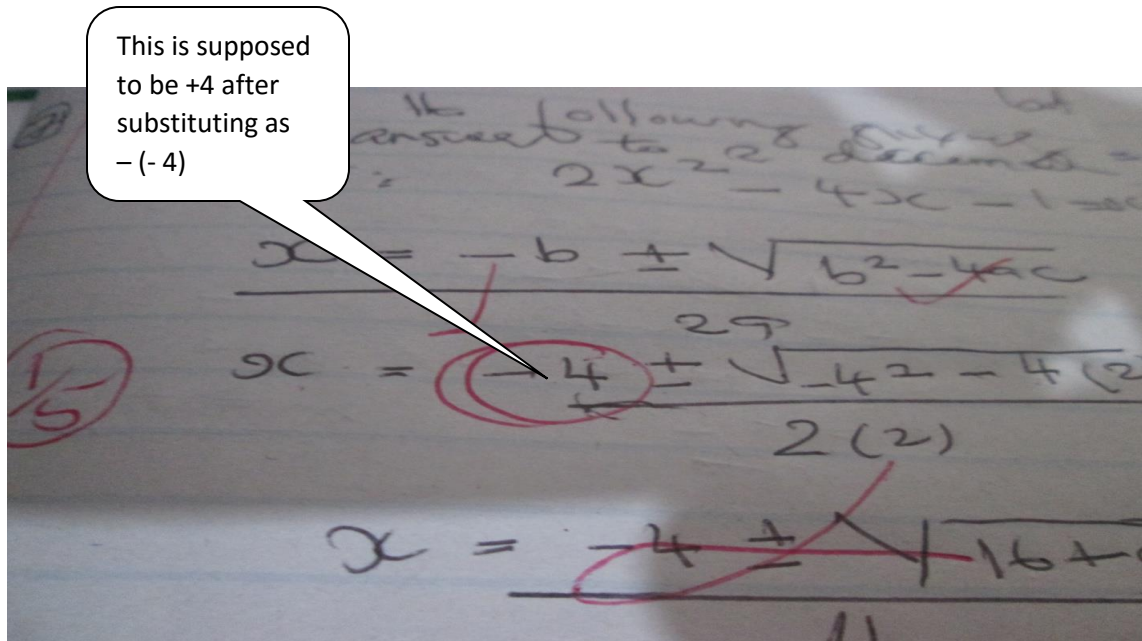 This is supposed
to be +4 after
substituting as
– (- 4)
following
answer to 2
2x² - 4x - 1
x = - b ± √b² - 4ac
2a
x = - 4 ± √-4² - 4(2
2(2)
1/5
x = -4 ± √16+